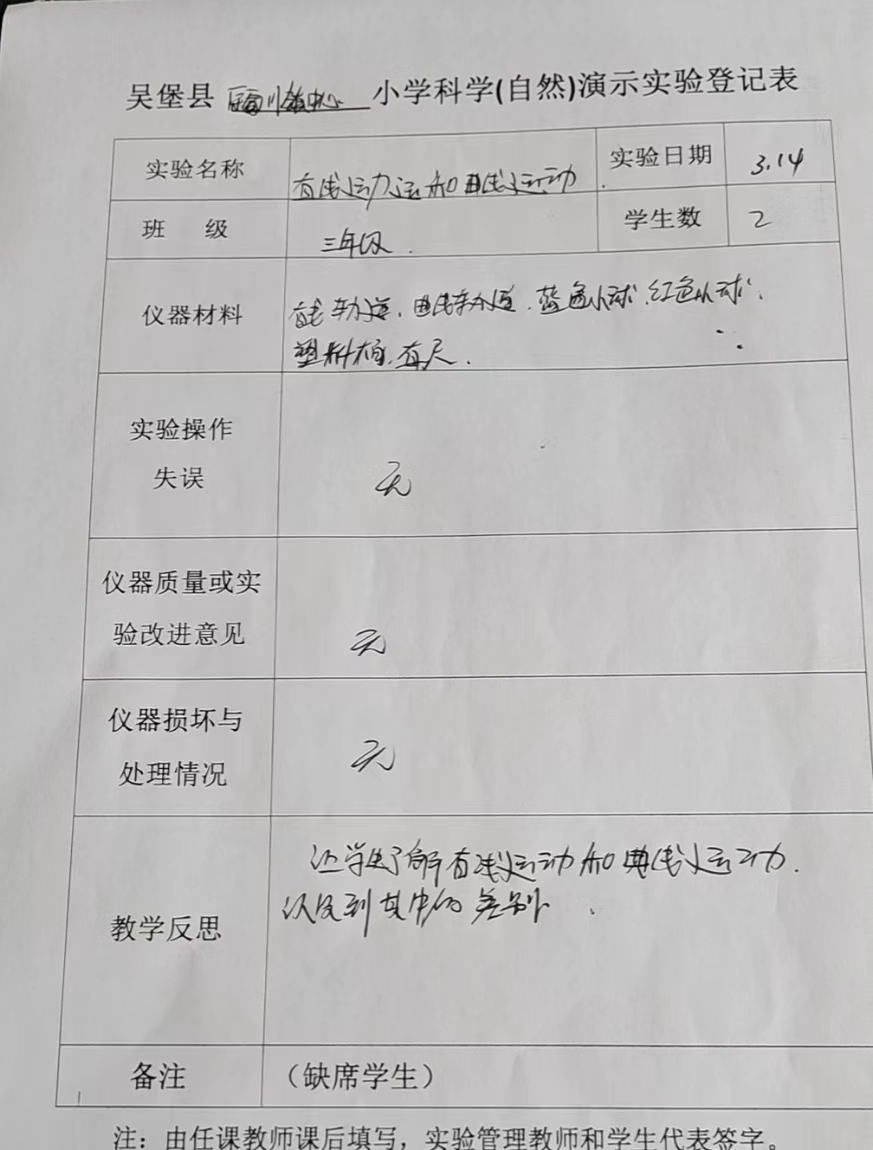 吴堡县 小学科学(自然)演示实验登记表
实验名称 直线运动和曲线运动 实验日期 3.14
班 级 三年级. 学生数 2
仪器材料 直线轨道.曲线轨道.蓝色小球.红色小球.
塑料 直尺.
实验操作
失误 无
仪器质量或实
验改进意见 无
仪器损坏与
处理情况 无
教学反思 让学生了解直线运动和曲线运动.
认识到其中的差别.
备注 (缺席学生)
注：由任课教师课后填写，实验管理教师和学生代表签字。